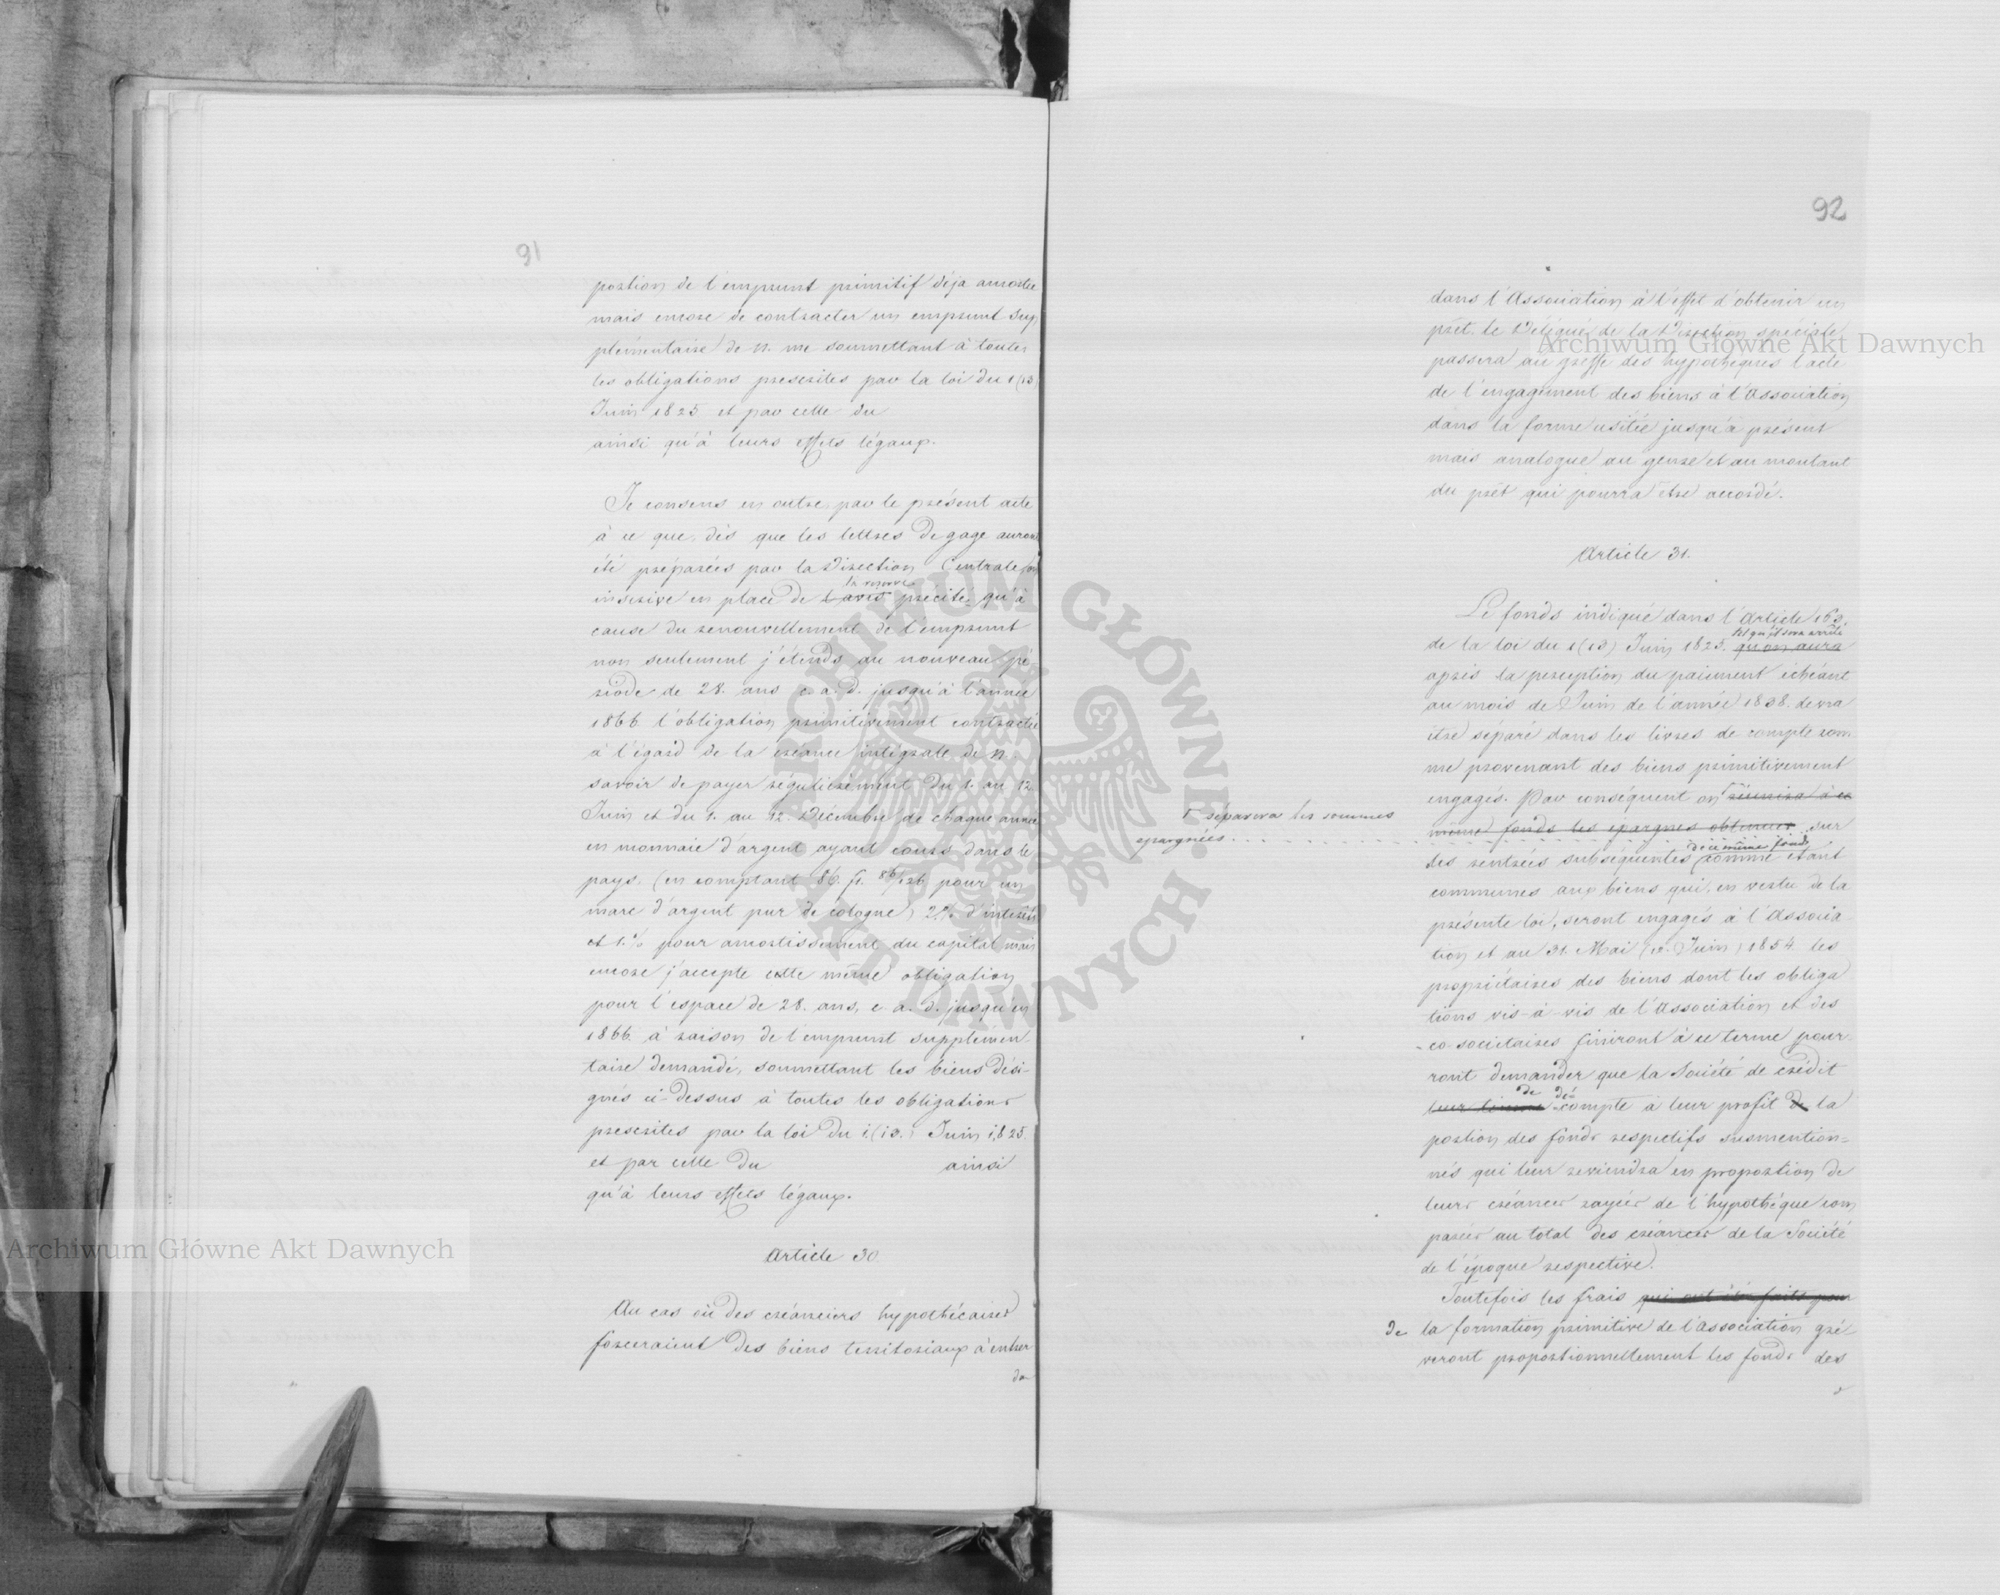 91
portion de l'emprunt primitif déja amortie
mais encore de contracter un emprunt sup
plémentaire de n. me soumettant à toutes
les obligations prescrites par la loi du 1 (13)
Juin 1825 et par celle du
ainsi qu'à leurs effets légaux.
Je consens en outre par le présent acte
à ce que, dès que les lettres de gage auront
été préparées par la Direction Centrale, on
la reserve
inscrive en place de l'avis précité qu'à
cause du renouvellement de l'emprunt
non seulement j'étends au nouveau pé
riode de 28. ans c. a. d. jusqu'à l'année
1866 l'obligation primitivement contractée
à l'égard de la créance intégrale de n.
savoir de payer régulièrement du 1. au 12.
Juin et du 1. au 12. Décembre de chaque année
en monnaie d'argent ayant cours dans le
pays, (en comptant 86. fl. 86/126 pour un
marc d'argent pur de Cologne) 2% d'intérêts
et 1.% pour amortissement du capital mais
encore j'accepte cette même obligation
pour l'espace de 28. ans, c. a. d. jusqu'en
1866. à raison de l'emprunt supplémen-
taire demandé, soumettant les biens dési-
gnés ci-dessus à toutes les obligations
prescrites par la loi du 1.(13.) Juin 1825.
et par celle du ainsi
qu'à leurs effets légaux.
Article 30
Au cas où des créanciers hypothécaires
forceraient des biens territoriaux à entrer
da
92
dans l'Association à l'effet d'obtenir un
prêt, le Délégué de la Direction spéciale
passera au greffe des hypothèques l'acte
de l'engagement des biens à l'Association
dans la forme usitée jusqu'à présent
mais analogue au genre et au montant
du prêt qui pourra être accordé.
Article 31.
Le fonds indiqué dans l'Article 163.
tel qu'il sera arrêté
de la loi du 1 (13) Juin 1825. qu'on aura
après la perception du paiement échéant
au mois de Juin de l'année 1838. devra
être séparé dans les livres de compte com
me provenant des biens primitivement
engagés. Par conséquent on réunira à ce
Γ séparera les sommes
épargnées
même fonds les épargnes obtenues sur
de ce même fonds
les rentrées subséquentes comme étant
communes aux biens qui, en vertu de la
présente loi, seront engagés à l'Associa
tion et au 31. Mai (12. Juin) 1854 les
propriétaires des biens dont les obliga
tions vis-à-vis de l'Association et des
co-sociétaires finiront à ce terme pour
ront demander que la Société de crédit
de
leur tienne compte à leur profit de la
portion des fonds respectifs susmention-
nés qui leur reviendra en proportion de
leurs créances rayées de l'hypothèque com
parées au total des créances de la Société
de l'époque respective.
Toutefois les frais qui ont été faits pour
de la formation primitive de l'Association gré
veront proportionnellement les fonds des
Archiwum Główne Akt Dawnych
Archiwum Główne Akt Dawnych
ARCHIWUM GŁÓWNE AKT DAWNYCH